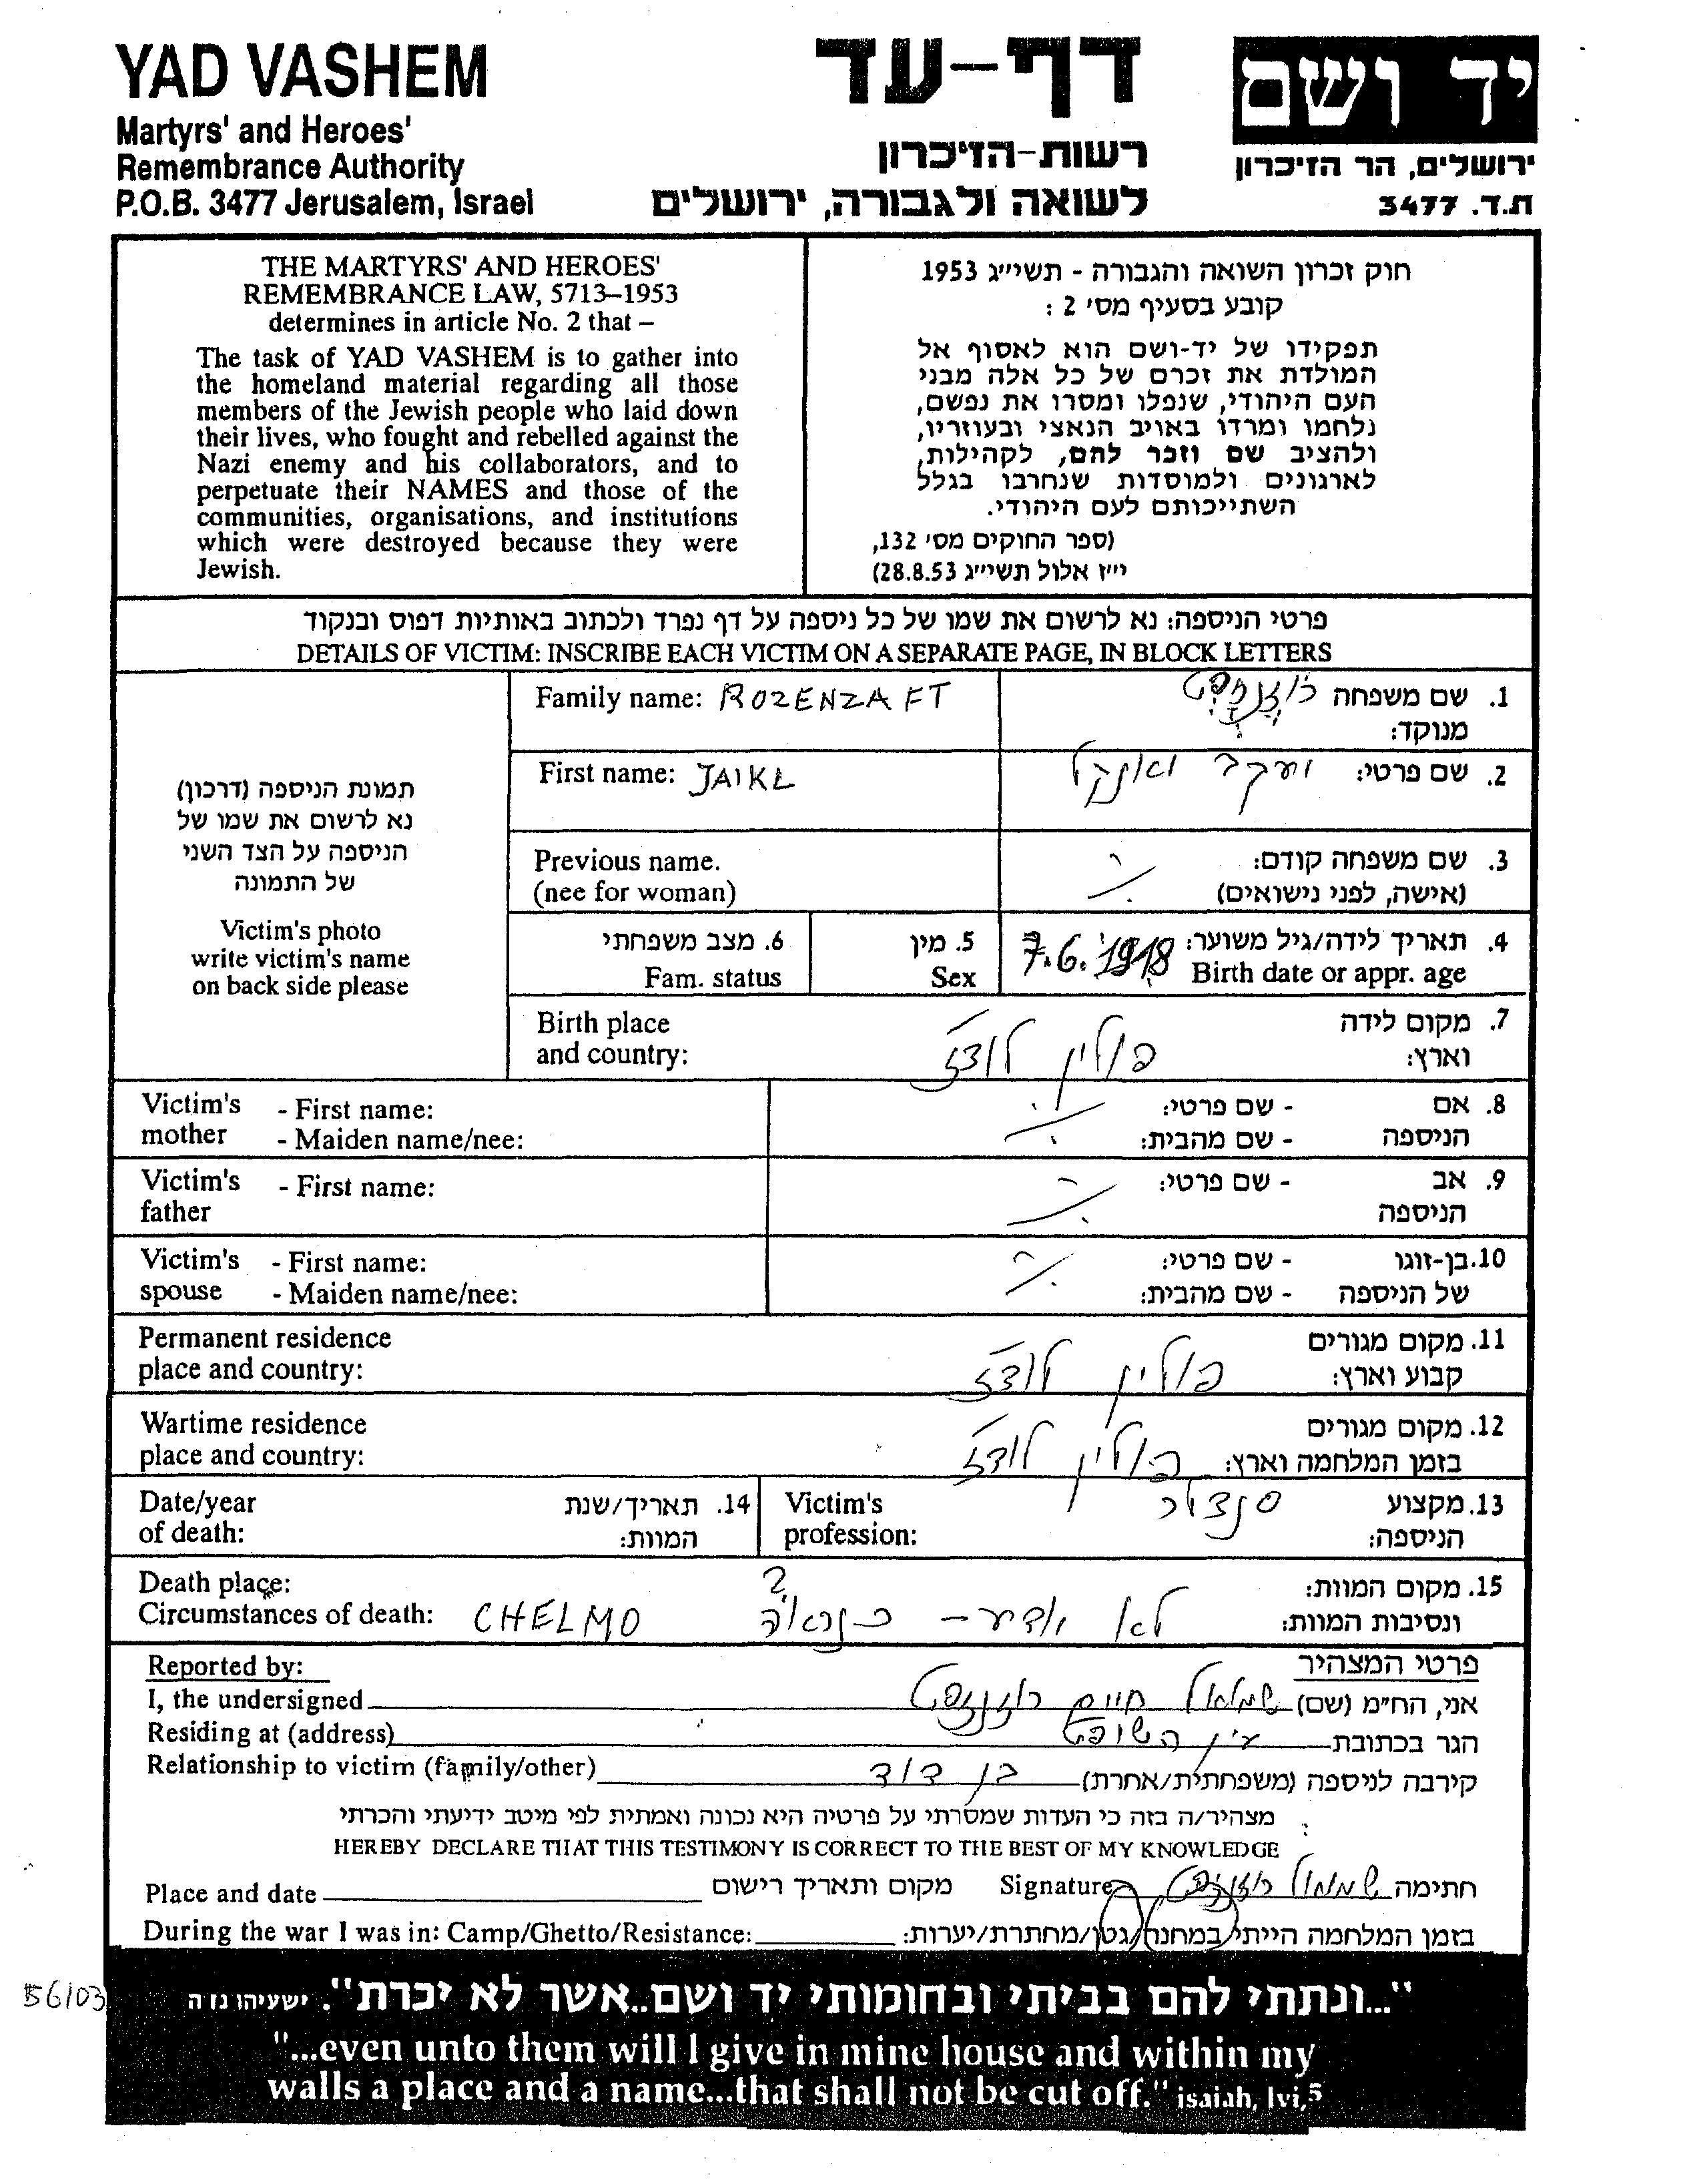 YAD VASHEM
Martyrs' and Heroes'
Remembrance Authority
P.O.B. 3477 Jerusalem, Israel
דף-עד
רשות-הזיכרון
לשואה ולגבורה, ירושלים
יד ושם
ירושלים, הר הזיכרון
ת.ד. 3477
THE MARTYRS' AND HEROES'
REMEMBRANCE LAW, 5713–1953
determines in article No. 2 that –
The task of YAD VASHEM is to gather into
the homeland material regarding all those
members of the Jewish people who laid down
their lives, who fought and rebelled against the
Nazi enemy and his collaborators, and to
perpetuate their NAMES and those of the
communities, organisations, and institutions
which were destroyed because they were
Jewish.
חוק זכרון השואה והגבורה - תשי״ג 1953
קובע בסעיף מס' 2 :
תפקידו של יד-ושם הוא לאסוף אל
המולדת את זכרם של כל אלה מבני
העם היהודי, שנפלו ומסרו את נפשם,
נלחמו ומרדו באויב הנאצי ובעוזריו,
ולהציב שם וזכר להם, לקהילות,
לארגונים ולמוסדות שנחרבו בגלל
השתייכותם לעם היהודי.
(ספר החוקים מס' 132,
י״ז אלול תשי״ג 28.8.53)
פרטי הניספה: נא לרשום את שמו של כל ניספה על דף נפרד ולכתוב באותיות דפוס ובנקוד
DETAILS OF VICTIM: INSCRIBE EACH VICTIM ON A SEPARATE PAGE, IN BLOCK LETTERS
תמונת הניספה (דרכון)
נא לרשום את שמו של
הניספה על הצד השני
של התמונה
Victim's photo
write victim's name
on back side please
Family name: ROZENZAFT
1. שם משפחה רוזנזפט
מנוקד:
First name: JAIKL
2. שם פרטי: יעקב יאנקל
Previous name.
(nee for woman)
3. שם משפחה קודם:
(אישה, לפני נישואים)
6. מצב משפחתי
Fam. status
5. מין
Sex
4. תאריך לידה/גיל משוער: 7.6.1918
Birth date or appr. age
Birth place
and country:
7. מקום לידה
וארץ: פולין לודז'
Victim's mother - First name:
- Maiden name/nee:
8. אם הניספה - שם פרטי:
- שם מהבית:
Victim's father - First name:
9. אב הניספה - שם פרטי:
Victim's spouse - First name:
- Maiden name/nee:
10. בן-זוגו של הניספה - שם פרטי:
- שם מהבית:
Permanent residence
place and country:
11. מקום מגורים
קבוע וארץ: פולין לודז'
Wartime residence
place and country:
12. מקום מגורים
בזמן המלחמה וארץ: פולין לודז'
Date/year
of death:
14. תאריך/שנת
המוות:
Victim's
profession:
13. מקצוע
הניספה: סנדלר
Death place:
Circumstances of death: CHELMO
15. מקום המוות:
ונסיבות המוות: לא יודע – כנראה ?
Reported by:
פרטי המצהיר
I, the undersigned
אני, הח״מ (שם) שמואל חיים רוזנזפט
Residing at (address)
הגר בכתובת עין השופט
Relationship to victim (family/other)
קירבה לניספה (משפחתית/אחרת) בן דוד
מצהיר/ה בזה כי העדות שמסרתי על פרטיה היא נכונה ואמתית לפי מיטב ידיעתי והכרתי
HEREBY DECLARE THAT THIS TESTIMONY IS CORRECT TO THE BEST OF MY KNOWLEDGE
Place and date
מקום ותאריך רישום
Signature
חתימה שמואל רוזנזפט
During the war I was in: Camp/Ghetto/Resistance:
בזמן המלחמה הייתי במחנה/גטו/מחתרת/יערות:
56/03
"...ונתתי להם בביתי ובחומותי יד ושם..אשר לא יכרת". ישעיהו נו ה
"...even unto them will I give in mine house and within my
walls a place and a name...that shall not be cut off." isaiah, lvi,5